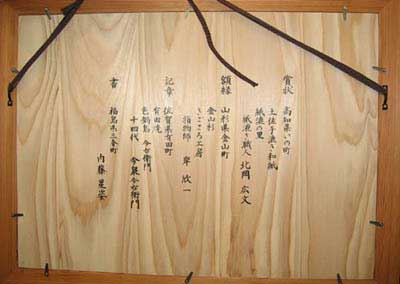 賞状 高知県いの町
土佐手漉き和紙
紙漉の里
紙漉き職人 北岡 広文
額縁 山形県金山町
金山杉
きごころ工房
指物師 岸 欣一
記章 佐賀県有田町
有田焼
色鍋島 今右衛門
十四代 今泉今右衛門
書 福島市三春町
内藤 星姿